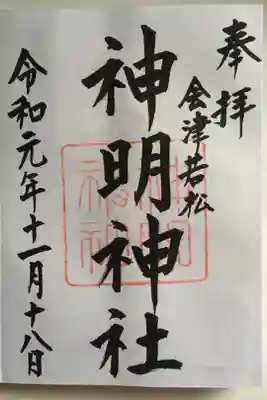 奉拝
会津若松
神明神社
令和元年十一月十八日